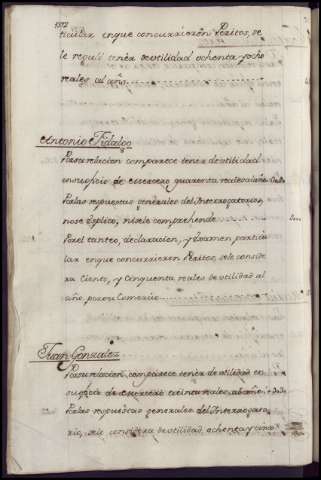 ticular enque concurrieron Peritos, se
le reguló tener de utilidad ochenta y ocho
reales al año
Antonio Fidalgo
Por su relacion comparece tener de utilidad
en su oficio de quarenta reales al año
Por las respuestas generales del Interrogatorio,
no se explico, ni se le comprehende
Por el tanteo, declaracion, y Examen particu
lar enque concurrieron Peritos, se le conside
ra Ciento, y Cinquenta reales de utilidad al
año por su Comercio
Juan Gonzalez
Por su relacion comparece tener de utilidad en
su oficio de treinta reales al año
Por las respuestas generales del Interrogato
rio, se le considera de utilidad ochenta y cinco